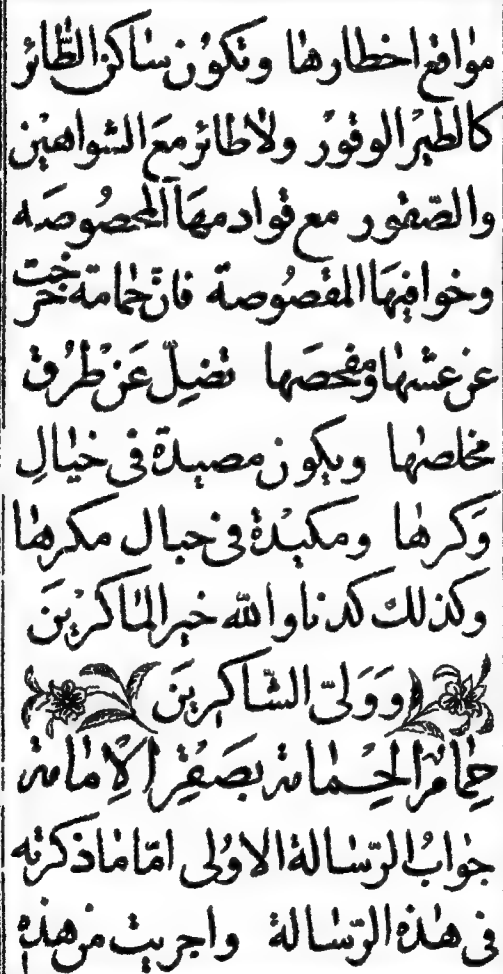 مواقع اخطارها وتكون ساكن الطائر
كالطير الوقور ولا طائر مع الشواهين
والصقور مع قوادمها المحصوصه
وخوافيها المقصوصة فان حمامة خرجت
عن عشها ومفحصها تضل عن طرق
مخلصها ويكون مصيدة فى خيال
وكرها ومكيدة فى حبال مكرها
وكذلك كدنا والله خير الماكرين
وولىّ الشاكرين
حمام الحمامة بصقر الامامة
جواب الرّسالة الاولى امّا ما ذكرته
فى هذه الرّسالة واجريت من هذه